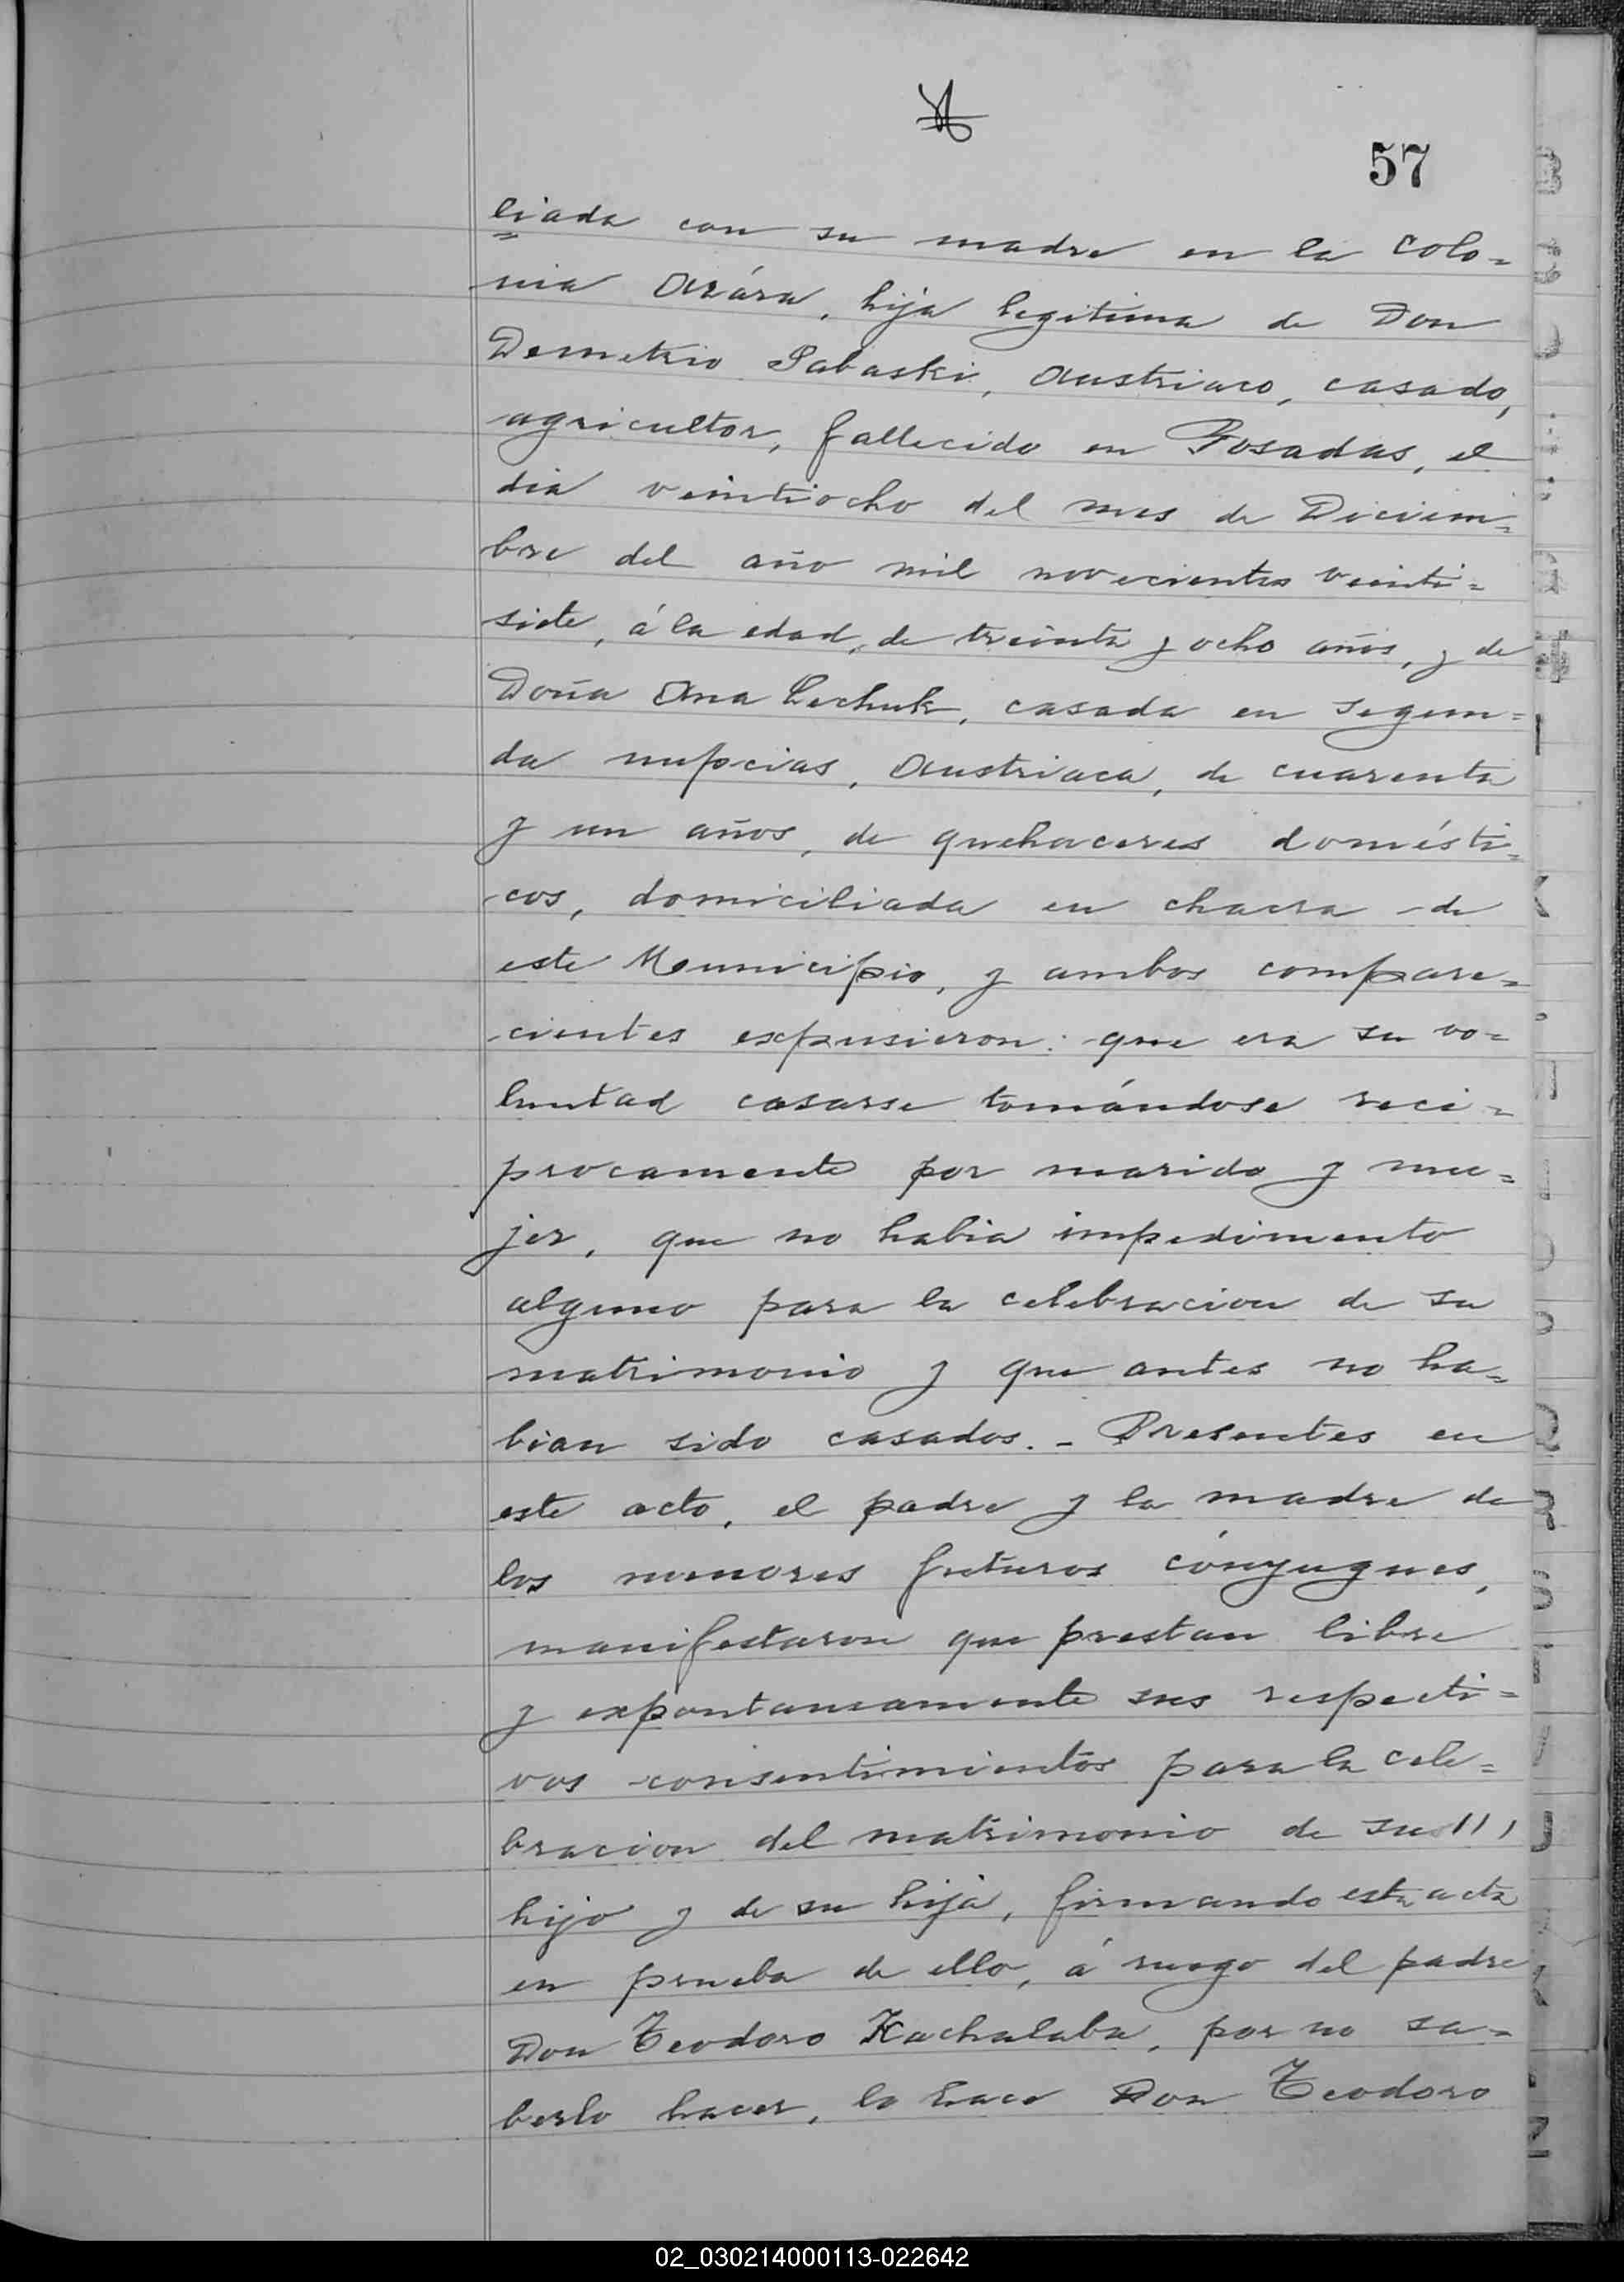 57
liada con su madre en la Colo=
nia Azára, hija legitima de Don
Demetrio Sabaski, Austriaco, casado,
agricultor, fallecido en Posadas, el
dia veintiocho del mes de Diciem=
bre del año mil novecientos veinti=
siete, á la edad, de treinta y ocho años, y de
Doña Ana Lechuk, casada en segun=
da nupcias, Austriaca, de cuarenta
y un años, de quehaceres domésti=
cos, domiciliada en chacra de
este Municipio, y ambos compare=
cientes expusieron: que era su vo=
luntad casarse tomándose reci=
procamente por marido y mu=
jer, que no habia impedimento
alguno para la celebracion de su
matrimonio y que antes no ha=
bian sido casados. - Presentes en
este acto, el padre y la madre de
los menores futuros cónyugues,
manifestaron que prestan libre
y expontaneamente sus respecti=
vos consentimientos para la cele=
bracion del matrimonio de su
hijo y de su hija, firmando esta acta
en prueba de ello, á ruego del padre
Don Teodoro Kachalaba, por no sa=
berlo hacer, lo hace Don Teodoro
02_030214000113-022642